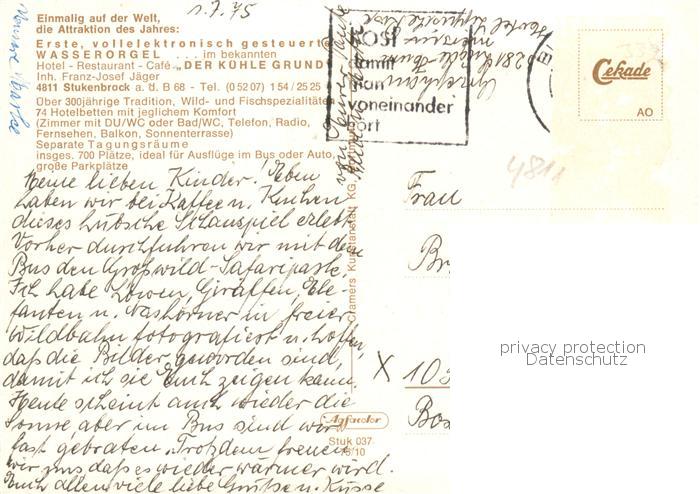 1.7.75
Einmalig auf der Welt,
die Attraktion des Jahres:
Erste, vollelektronisch gesteuerte
WASSERORGEL ... im bekannten
Hotel - Restaurant - Café „DER KÜHLE GRUND"
Inh. Franz-Josef Jäger
4811 Stukenbrock a. d. B 68 - Tel. (0 52 07) 1 54 / 25 25
Über 300jährige Tradition, Wild- und Fischspezialitäten
74 Hotelbetten mit jeglichem Komfort
(Zimmer mit DU/WC oder Bad/WC, Telefon, Radio,
Fernsehen, Balkon, Sonnenterrasse)
Separate Tagungsräume
insges. 700 Plätze, ideal für Ausflüge im Bus oder Auto,
große Parkplätze
Meine lieben Kinder! Eben
haben wir bei Kaffee u. Kuchen
dieses hübsche Schauspiel erlebt.
Vorher durchfuhren wir mit dem
Bus den Großwild-Safaripark.
Ich habe Löwen, Giraffen, Ele-
fanten u. Nashörner in freier
Wildbahn fotografiert u. hoffe,
daß die Bilder geworden sind,
damit ich sie Euch zeigen kann.
Heute scheint auch wieder die
Sonne, aber im Bus sind wir
fast gebraten. Trotzdem freuen
wir uns daß es wieder warmer wird.
Euch allen viele liebe Grüße u. Küsse
von Eurer
Cramers Kunstanstalt KG,
Agfacolor
Stuk 037
75/10
POST
damit
man
voneinander
hört
Cekade
AO
4811
Frau
X 10
privacy protection
Datenschutz